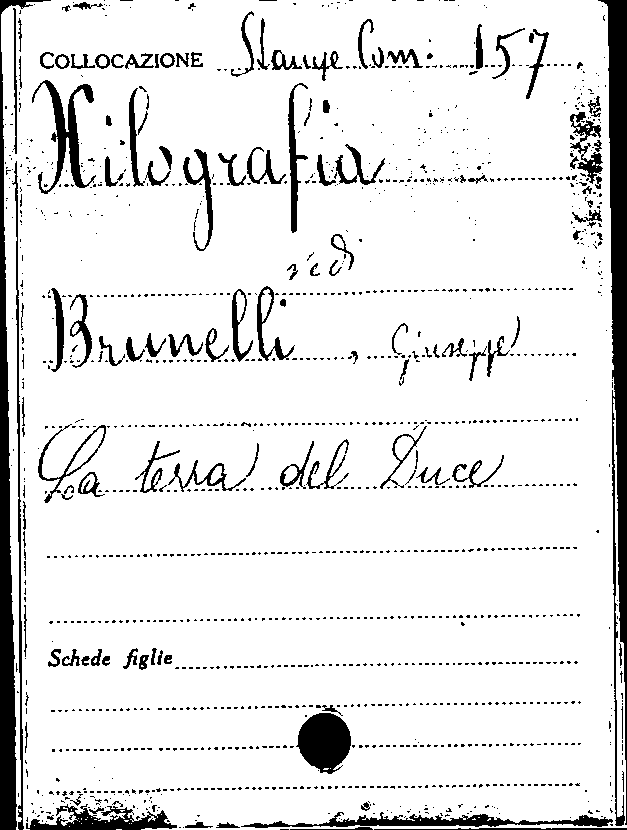 COLLOCAZIONE Stampe Com. 157.
Xilografia
vedi
Brunelli, Giuseppe
La terra del Duce
Schede figlie